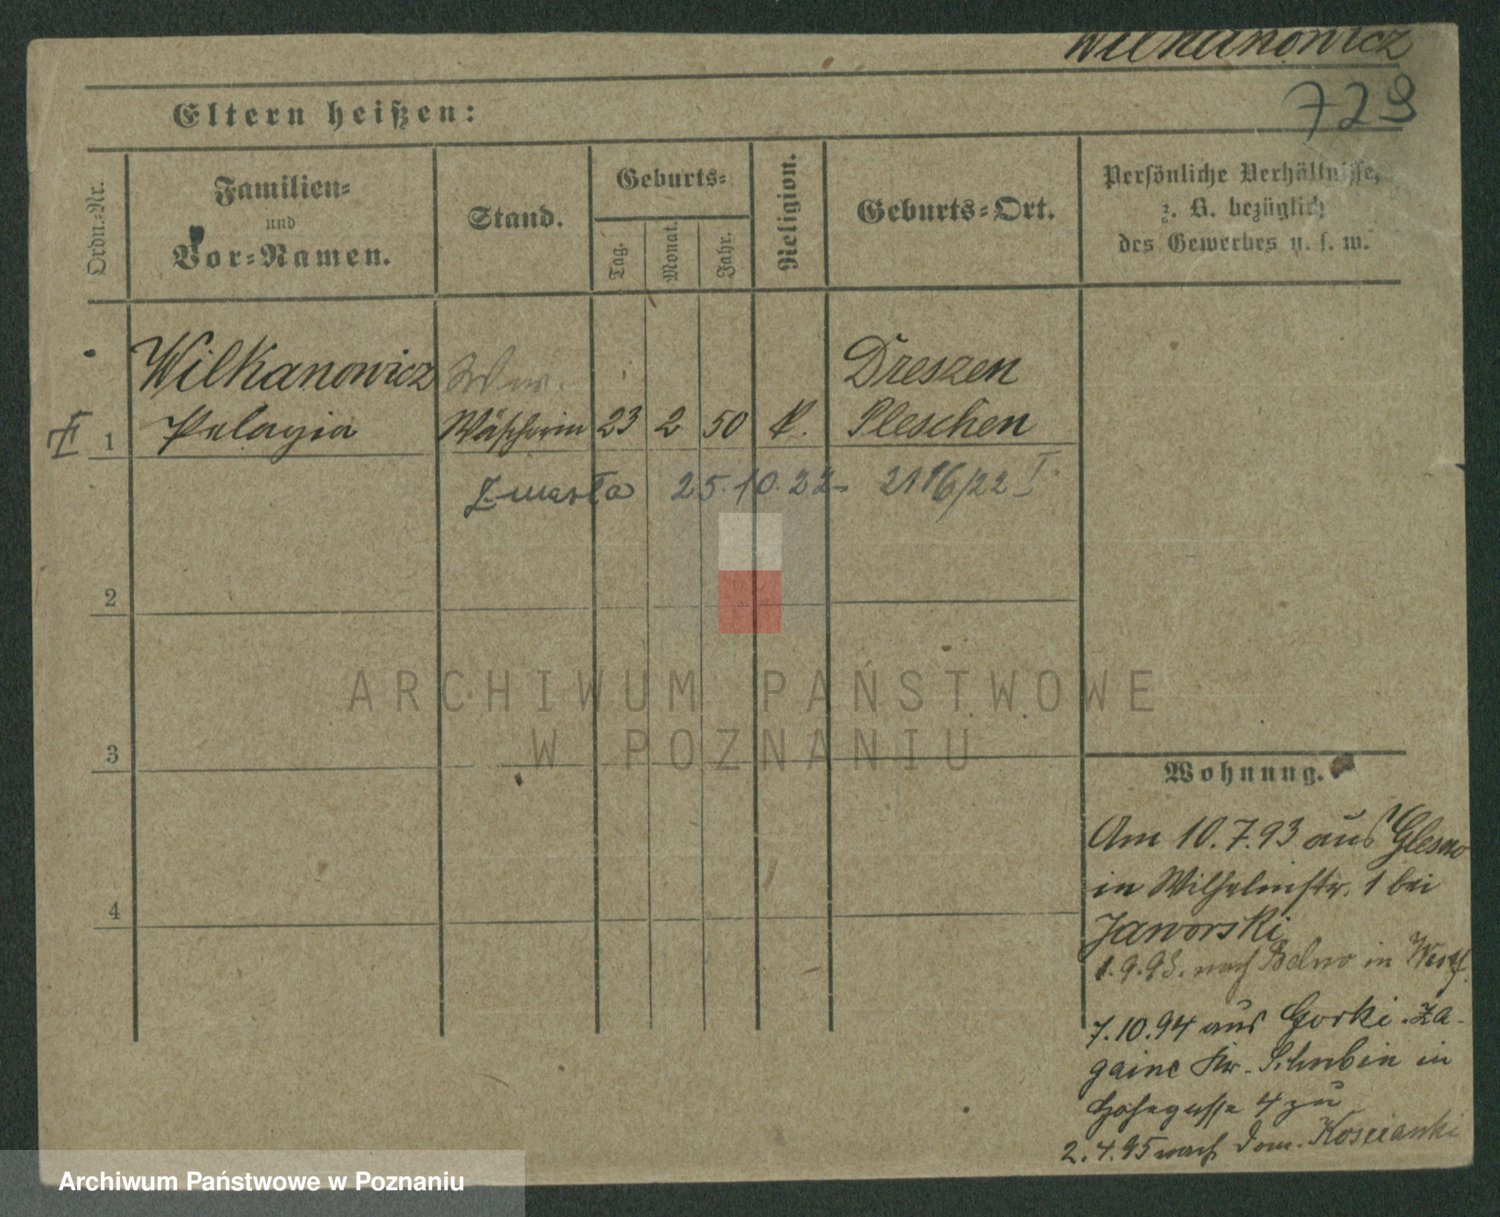 Wilkanowicz
729
Eltern heißen:
Ordn.-Nr.
Familien-
und
Vor-Namen.
Stand.
Geburts-
Tag.
Monat.
Jahr.
Religion.
Geburts-Ort.
Persönliche Verhältnisse,
z. B. bezüglich
des Gewerbes u. s. w.
Wilkanowicz Ww. Dreszen
1 Pelagia Wäscherin 23 2 50 k. Pleschen
Zmarła 25.10.22 2116/22 I
2
3
4
ARCHIWUM PAŃSTWOWE
W POZNANIU
Wohnung.
Am 10.7.93 aus Glesno
in Wilhelmstr. 1 bei
Jaworski
1.9.93. nach in
7.10.94 aus Gorki-Za-
gajne Kr. Schubin in
Hohegasse 4 zu
2.4.95 nach Dom. Koscianki
Archiwum Państwowe w Poznaniu